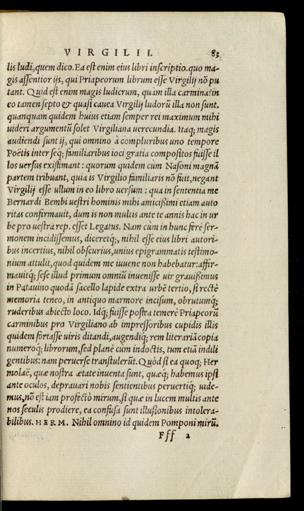 VIRGILII. 83
lis ludi, quem dico. Ea est enim eius libri inscriptio. quo ma-
gis assentior ijs, qui Priapeorum librum esse Virgilij nõ pu
tant. Quid est enim magis ludicrum, quàm illa carmina? in
eo tamen septo & quasi cauea Virgilij ludorũ illa non sunt.
quanquam quidem huius etiam semper rei maximum mihi
uideri argumentũ solet Virgiliana uerecundia. Itaq; magis
audiendi sunt ij, qui omnino à compluribus uno tempore
Poetis inter seq; familiaribus ioci gratia compositos fuisse il
los uersus existimant: quorum quidem cùm Nasoni magnã
partem tribuant, quia is Virgilio familiaris nõ fuit, negant
Virgilij esse ullum in eo libro uersum: qua in sententia me
Bernardi Bembi uestri hominis mihi amicissimi etiam auto
ritas confirmauit, dum is non multis ante te annis hac in ur
be pro uestra rep. esset Legatus. Nam cùm in hunc ferè ser-
monem incidissemus, diceretq;, nihil esse eius libri autori-
bus incertius, nihil obscurius, unius epigrammatis testimo-
nium attulit, quod quidem me iuuene non habebatur: affir-
mauitq; sese illud primum omniũ inuenisse uir grauissimus
in Patauino quodã sacello lapide extra urbẽ tertio, si rectè
memoria teneo, in antiquo marmore incisum, obrutumq;
ruderibus abiecto loco. Idq; fuisse postra temerè Priapeorũ
carminibus pro Virgiliano ab impressoribus cupidis illis
quidem fortasse uiris ditandi, augendiq; rem literariã copia
numeroq; librorum, sed planè cum indoctis, tum etiã indili
gentibus: nam peruersè transtulerũt. Quòd si ea quoq; Her
molaë, quæ nostra ætate inuenta sunt, quæq; habemus ipsi
ante oculos, deprauari nobis sentientibus peruertiq; uide-
mus, nõ est iam profectò mirum, si quæ in lucem multis ante
nos seculis prodiere, ea confusa sunt illusionibus intolera-
bilibus. HERM. Nihil omnino id quidem Pomponi mirũ.
Fff 2